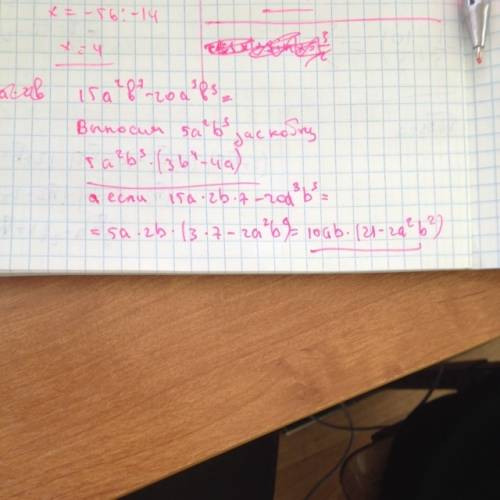 x = -56 : -14
x = 4
15a²b⁷ - 20a³b³ =
Выносим 5a²b³ за скобки
5a²b³ · (3b⁴ - 4a)
а если 15a · 2b · 7 - 20a³b³ =
= 5a · 2b · (3 · 7 - 2a²b²) = 10ab · (21 - 2a²b²)